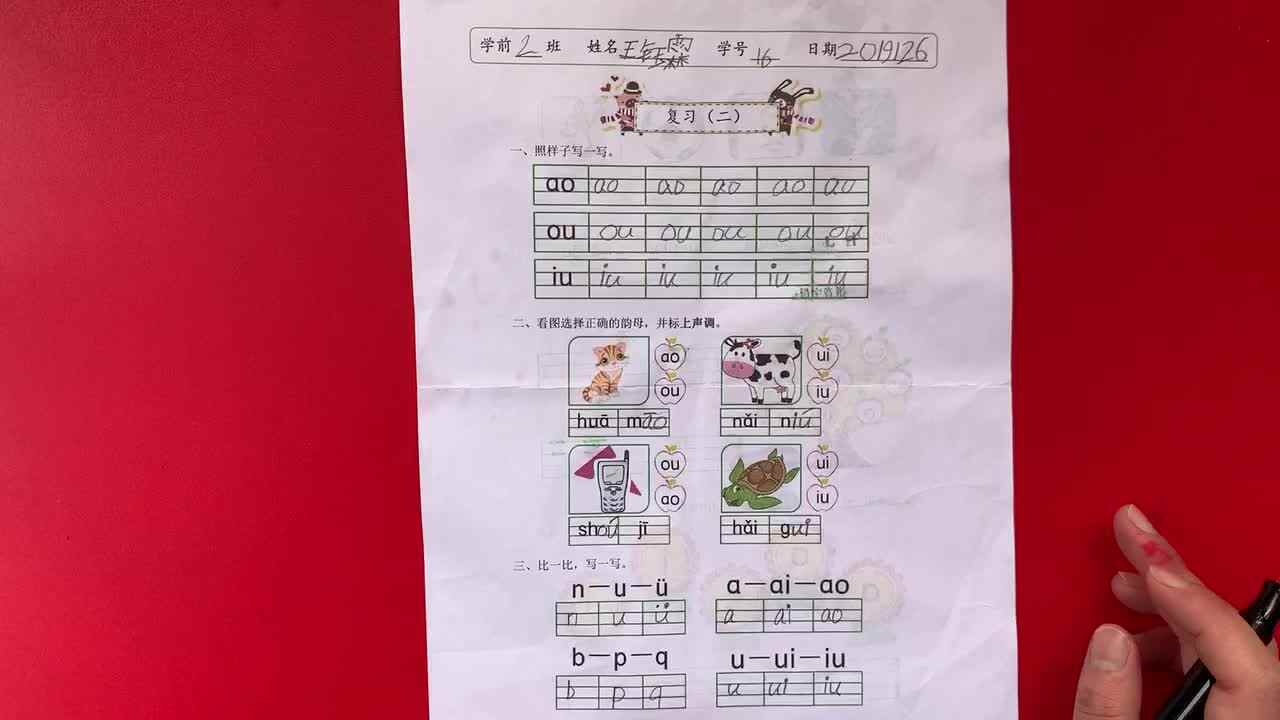 学前 2 班 姓名 王 学号 16 日期 2019126
复习（二）
一、照样子写一写。
ao ao ao ao ao ao
ou ou ou ou ou ou
iu iu iu iu iu iu
二、看图选择正确的韵母，并标上声调。
ao ui
ou iu
huā māo nǎi niú
ou ui
ao iu
shǒu jī hǎi gui
三、比一比，写一写。
n—u—ü a—ai—ao
n u ü a ai ao
b—p—q u—ui—iu
b p q u ui iu